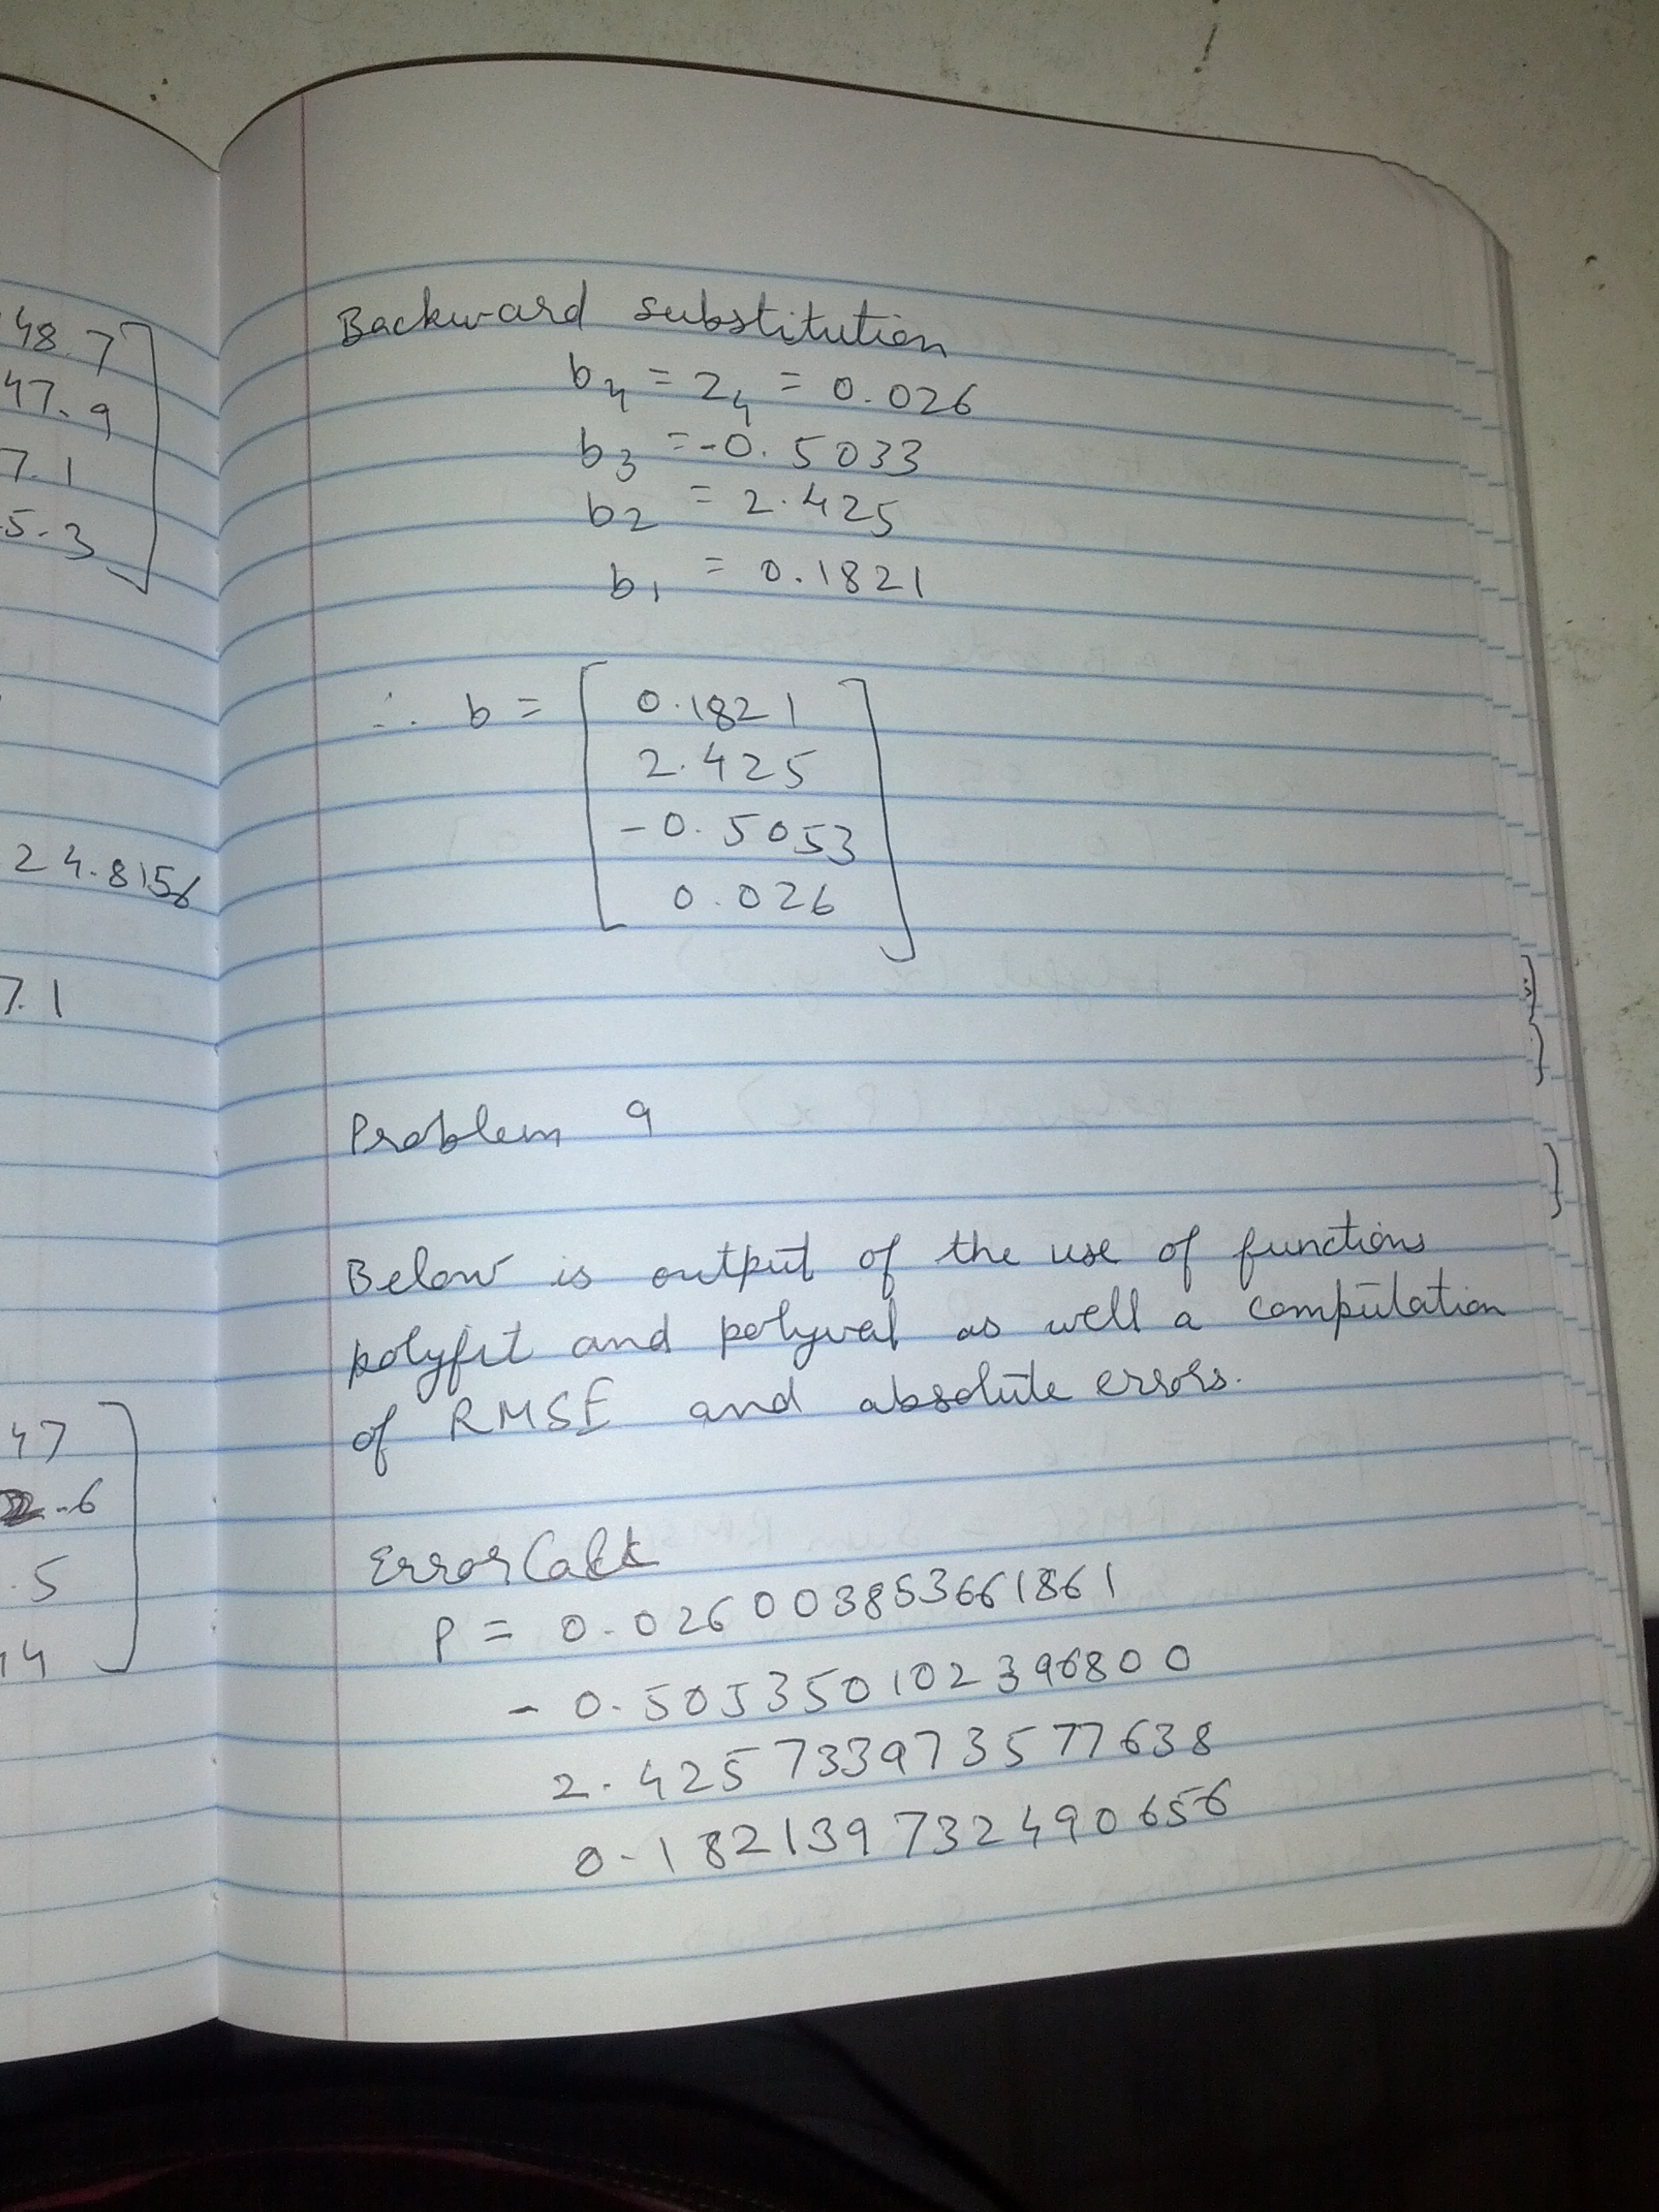 48.7
47.9
7.1
5.3
24.8156
7.1
47
.6
.5
14
Backward substitution
b4 = z4 = 0.026
b3 = -0.5033
b2 = 2.425
b1 = 0.1821
∴ b = [ 0.1821
2.425
-0.5053
0.026 ]
Problem 9
Below is output of the use of functions
polyfit and polyval as well a computation
of RMSE and absolute errors.
P = 0.026003853661861
- 0.505350102396800
2.425733973577638
0.182139732490656